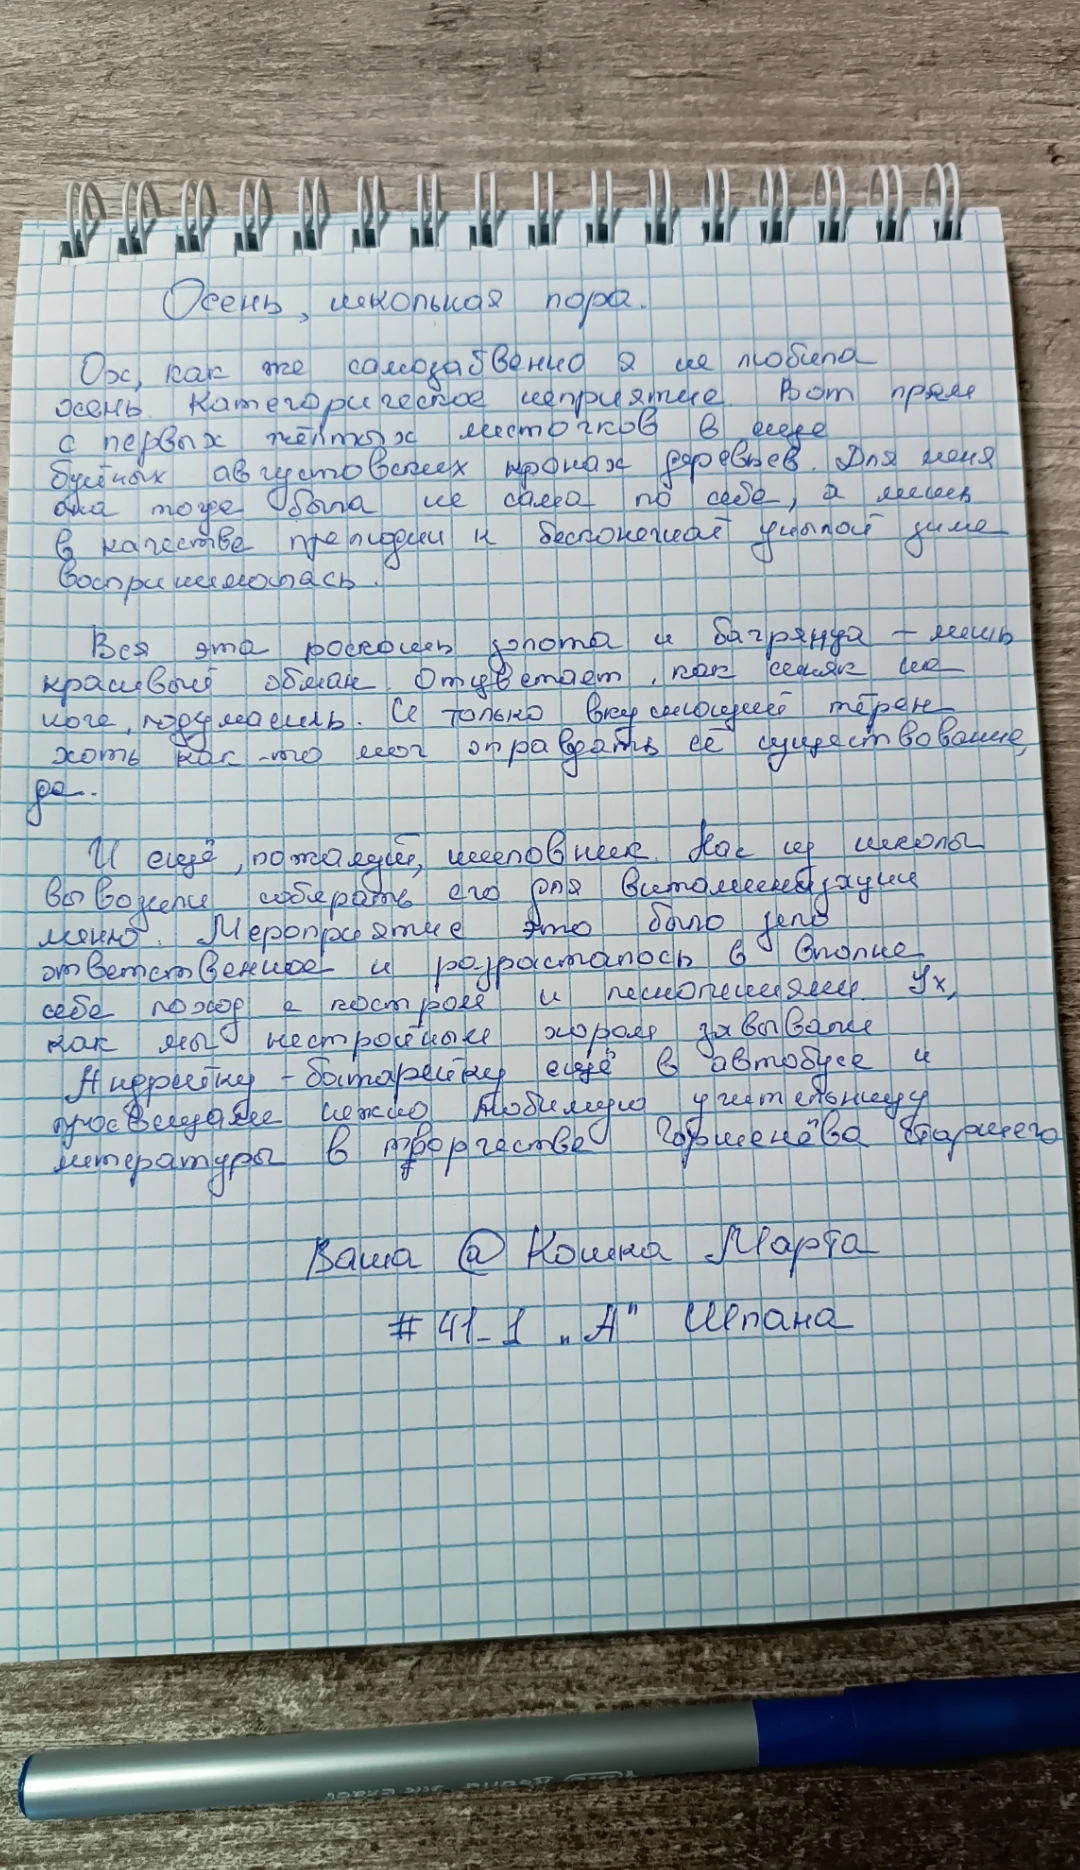 Осень, школьная пора.
Ох, как же самозабвенно я не любила
осень. Категорическое неприятие. Вот прям
с первых жёлтых листочков в ещё
буйных августовских кронах деревьев. Для меня
она тогда была не сама по себе, а лишь
в качестве прелюдии к бесконечной унылой зиме
воспринималась.
Вся эта роскошь золота и багрянца – лишь
красивый обман. Отцветает, как синяк на
ноге, подумаешь. И только вкуснющий тёрен
хоть как-то мог оправдать её существование,
да.
И ещё, пожалуй, шиповник. Нас из школы
вывозили собирать его для витаминизации
меню. Мероприятие это было зело
ответственное и разрасталось в вполне
себе поход с костром и песнопениями. Ух,
как мы нестройным хором завывали
Андрейку-батарейку ещё в автобусе и
просвещали нежно любимую учительницу
литературы в творчестве Горшенёва Старшего
Ваша @ Кошка Марта
# 41-1 „А" Шпана